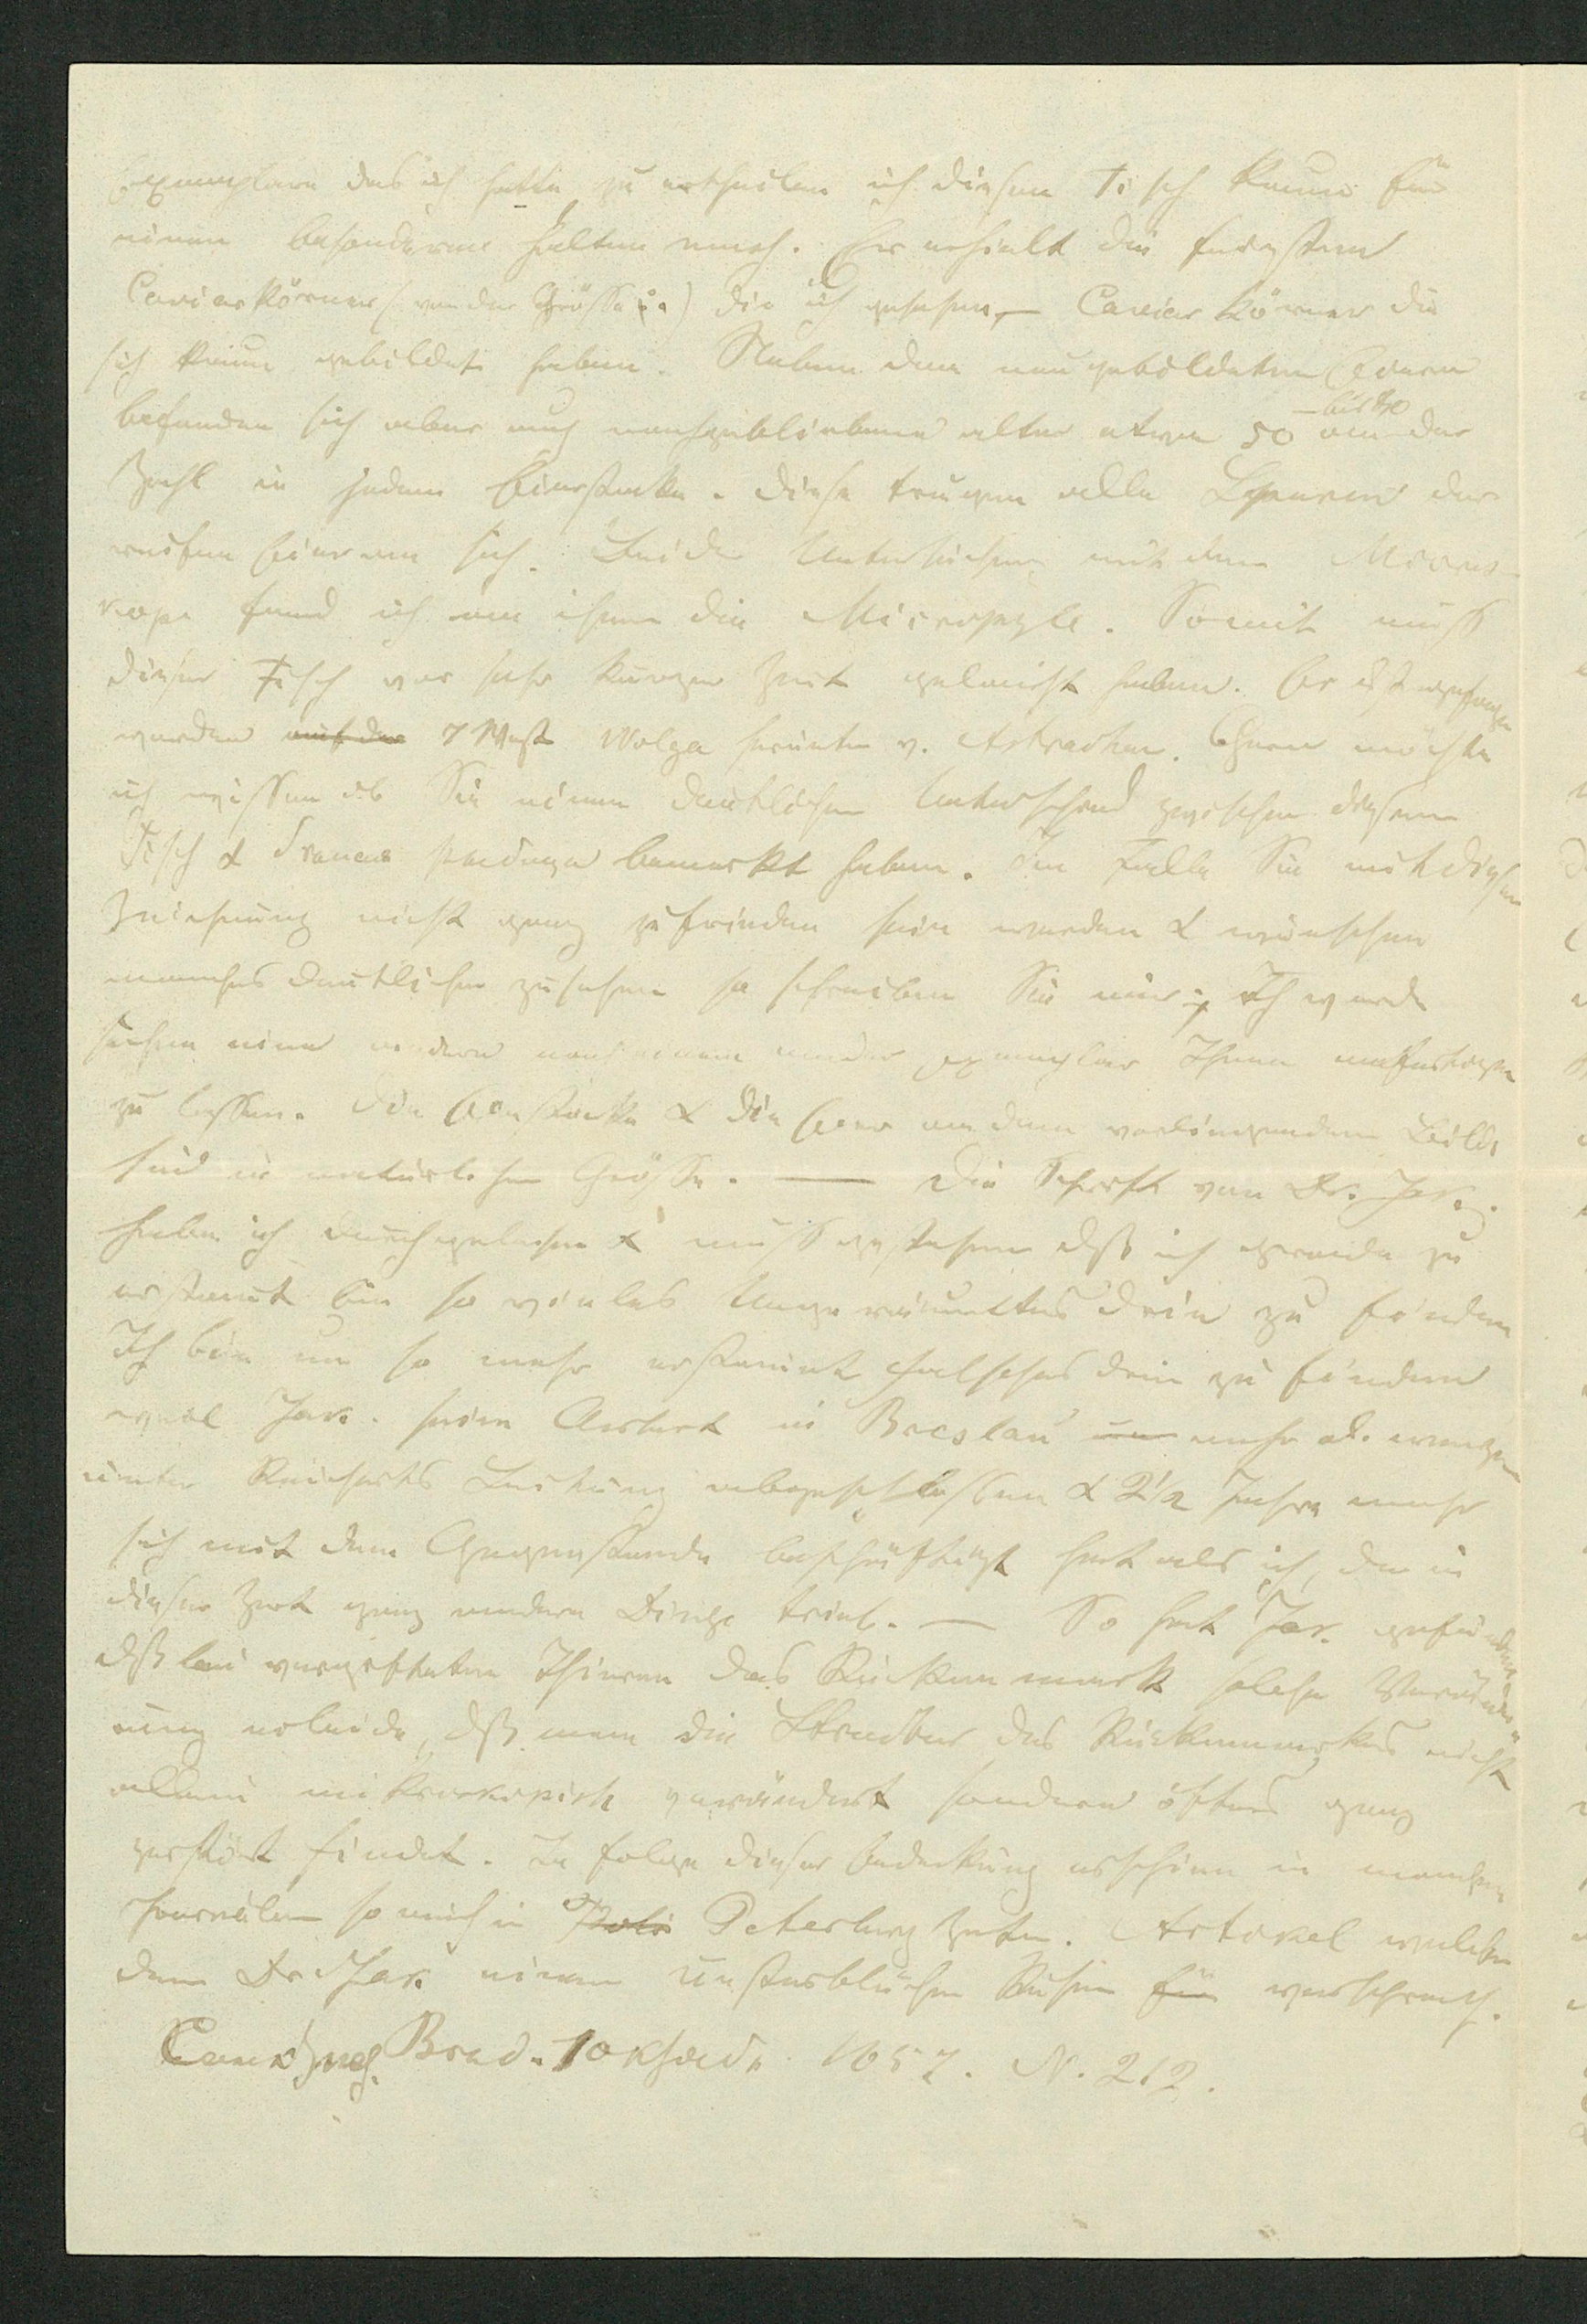 Exemplare das ich hatte zu urtheilen ich diesen Fisch kaum für
einen besonderen halten mag. Er enthält die feinsten
Caviarkörner (von der Grösse) die ich gesehen, — Caviar Körner die
sich kaum gebildet haben. Neben den neugebildeten Eiern
befanden sich aber auch nachgebliebene alte etwa 50 – bis 80 an der
Zahl in jedem Eierstocke. Diese trugen alle Spuren der
reifen Eier an sich. Bei der Untersuchung mit dem Micros-
cope fand ich an ihnen die Micropyle. Somit muss
dieser Fisch vor sehr kurzer Zeit gelaicht haben. Er ist gefangen
worden auf der 7 Werst Wolga herunter v. Astrachan. Gern möchte
ich wissen ob Sie einen deutlichen Unterschied zwischen diesem
Fisch & bemerkt haben. Im Falle Sie mit dieser
Zeichnung nicht ganz zufrieden sein werden & wünschen
manches deutlicher zu sehen so schreiben Sie mir; Ich werde
suchen eine andere nach einem andern Exemplar Ihnen anfertigen
zu lassen. Die Eierstöcke & die Eier an dem vorliegenden Bilde
sind in natürlicher Grösse. — Die Schrift von Dr. Jak.
habe ich durchgelesen & muss gestehen dß ich gerade zu
erstaunt bin so vieles Ungereimtes drin zu finden
Ich bin um so mehr erstaunt falsches drin zu finden
weil Jak. seine Arbeit in Breslau mehr od. weniger
unter Reicherts Leitung abgeschlossen & 2½ Jahre mehr
sich mit dem Gegenstande beschäftigt hat als ich, der in
dieser Zeit ganz andere Dinge trieb. — So hat Jak. gefunden
dß bei vergifteten Thieren das Rückenmark solche Veränder-
ung erleide, dß man die Structur des Rückenmarkes nicht
allein mikroskopisch verändert sondern öfters ganz
zerstört findet. In Folge dieser Entdeckung erschien in manchen
Journalen so auch in Petersburg Zeitn. Artikel welche
dem Dr Jak. einen unsterblichen Ruhm für versprach.
1857. N. 212.